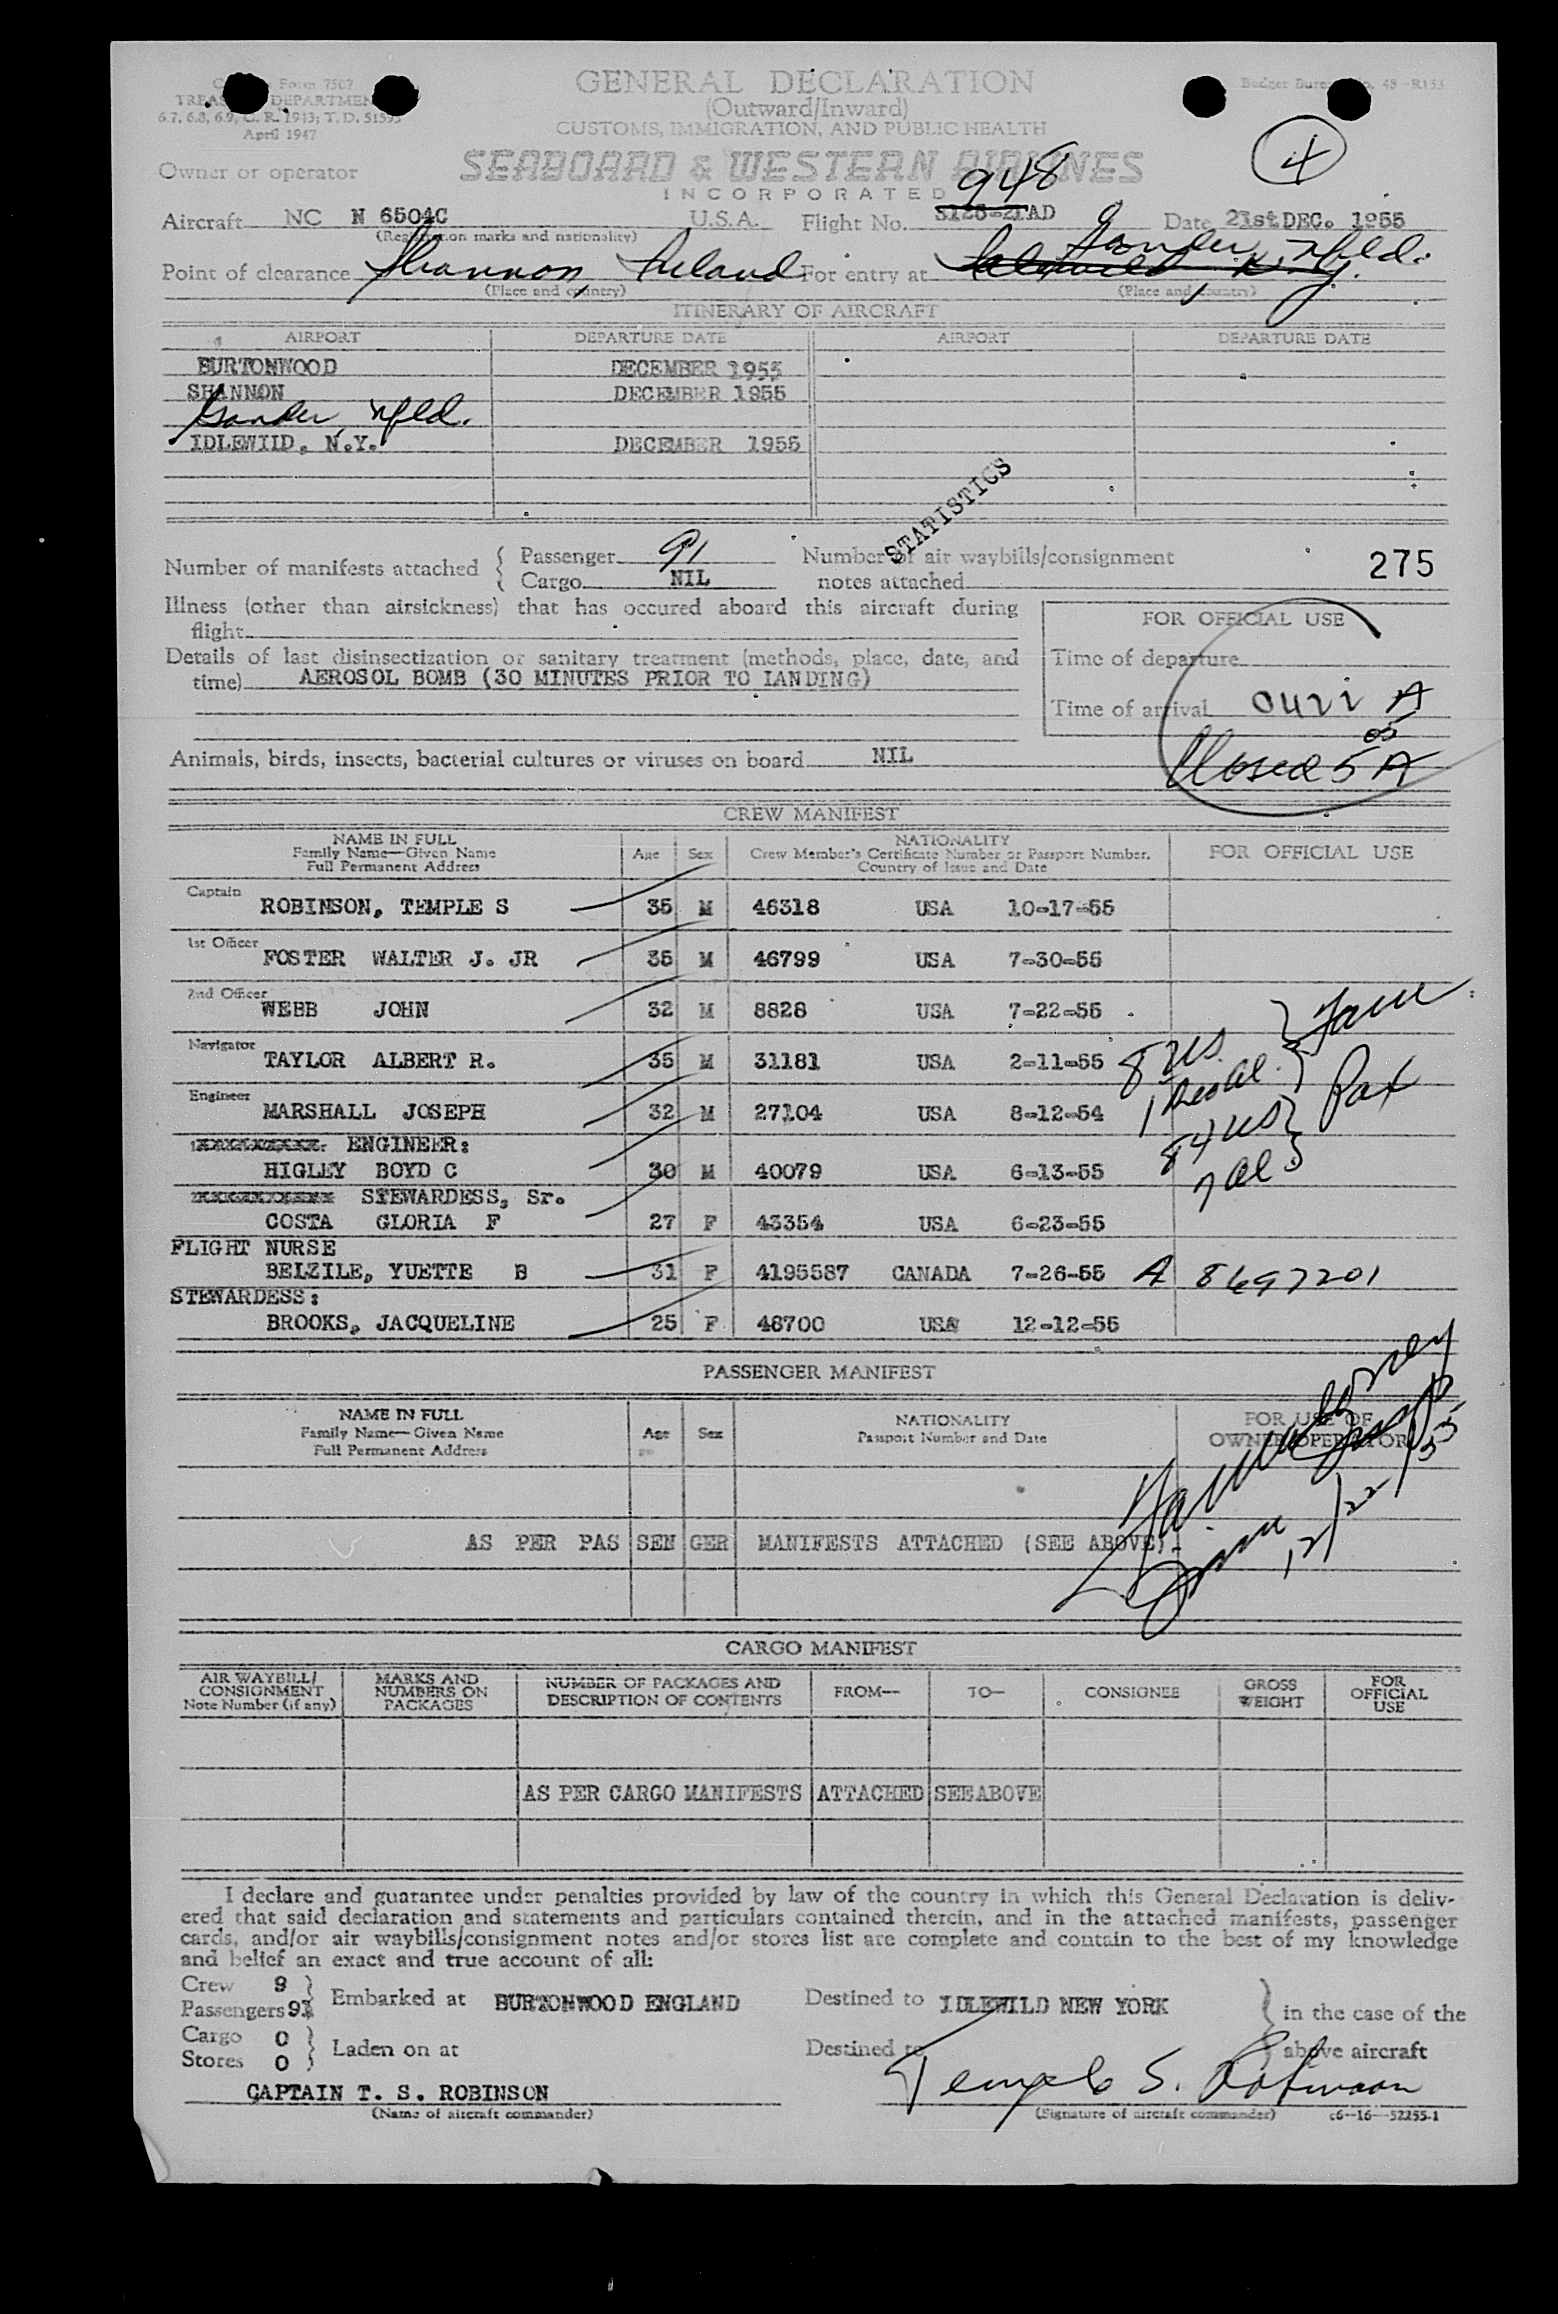 Form 7507
TREAS DEPARTMEN
6.7, 6.8, 6.9, C. R. 1913; T. D. 51593
April 1947
GENERAL DECLARATION
(Outward/Inward)
CUSTOMS, IMMIGRATION, AND PUBLIC HEALTH
Budget Bureau No. 48-R153
4
Owner or operator
SEABOARD & WESTERN AIRLINES
INCORPORATED
948
Aircraft NC N 6504C U.S.A. Flight No. Date 21st DEC. 1955
(Registration marks and nationality)
Point of clearance Shannon Ireland For entry at Gander, Nfld.
(Place and country) (Place and country)
ITINERARY OF AIRCRAFT
AIRPORT DEPARTURE DATE AIRPORT DEPARTURE DATE
BURTONWOOD DECEMBER 1955
SHANNON DECEMBER 1955
Gander, Nfld.
IDLEWILD, N.Y. DECEMBER 1955
STATISTICS
Number of manifests attached { Passenger 91 Number of air waybills/consignment
Cargo NIL notes attached
275
Illness (other than airsickness) that has occured aboard this aircraft during
flight
FOR OFFICIAL USE
Details of last disinsectization or sanitary treatment (methods, place, date, and
time) AEROSOL BOMB (30 MINUTES PRIOR TO LANDING)
Time of departure
Time of arrival 0422 A
Closed 5 05 A
Animals, birds, insects, bacterial cultures or viruses on board NIL
CREW MANIFEST
NAME IN FULL Age Sex NATIONALITY FOR OFFICIAL USE
Family Name—Given Name Crew Member's Certificate Number or Passport Number,
Full Permanent Address Country of Issue and Date
Captain
ROBINSON, TEMPLE S 35 M 46318 USA 10-17-55
1st Officer
FOSTER WALTER J. JR 35 M 46799 USA 7-30-55
2nd Officer
WEBB JOHN 32 M 8828 USA 7-22-55
Navigator
TAYLOR ALBERT R. 35 M 31181 USA 2-11-55
Engineer
MARSHALL JOSEPH 32 M 27104 USA 8-12-54
ENGINEER:
HIGLEY BOYD C 30 M 40079 USA 6-13-55
STEWARDESS, Sr.
COSTA GLORIA F 27 F 43354 USA 6-23-55
FLIGHT NURSE
BELZILE, YUETTE B 31 F 4195587 CANADA 7-26-55 A 8697201
STEWARDESS:
BROOKS, JACQUELINE 25 F 48700 USA 12-12-55
8 US
84 US } Pax
7 al
PASSENGER MANIFEST
NAME IN FULL Age Sex NATIONALITY FOR USE OF
Family Name—Given Name Passport Number and Date OWNER/OPERATOR
Full Permanent Address
AS PER PASSENGER MANIFESTS ATTACHED (SEE ABOVE).
12/22/55
CARGO MANIFEST
AIR WAYBILL/ MARKS AND NUMBER OF PACKAGES AND FROM— TO— CONSIGNEE GROSS FOR
CONSIGNMENT NUMBERS ON DESCRIPTION OF CONTENTS WEIGHT OFFICIAL
Note Number (if any) PACKAGES USE
AS PER CARGO MANIFESTS ATTACHED SEE ABOVE
I declare and guarantee under penalties provided by law of the country in which this General Declaration is deliv-
ered that said declaration and statements and particulars contained therein, and in the attached manifests, passenger
cards, and/or air waybills/consignment notes and/or stores list are complete and contain to the best of my knowledge
and belief an exact and true account of all:
Crew 9 } Embarked at BURTONWOOD ENGLAND Destined to IDLEWILD NEW YORK } in the case of the
Passengers 91
Cargo 0 } Laden on at Destined to above aircraft
Stores 0
CAPTAIN T. S. ROBINSON Temple S. Robinson
(Name of aircraft commander) (Signature of aircraft commander) c6-16-52255-1